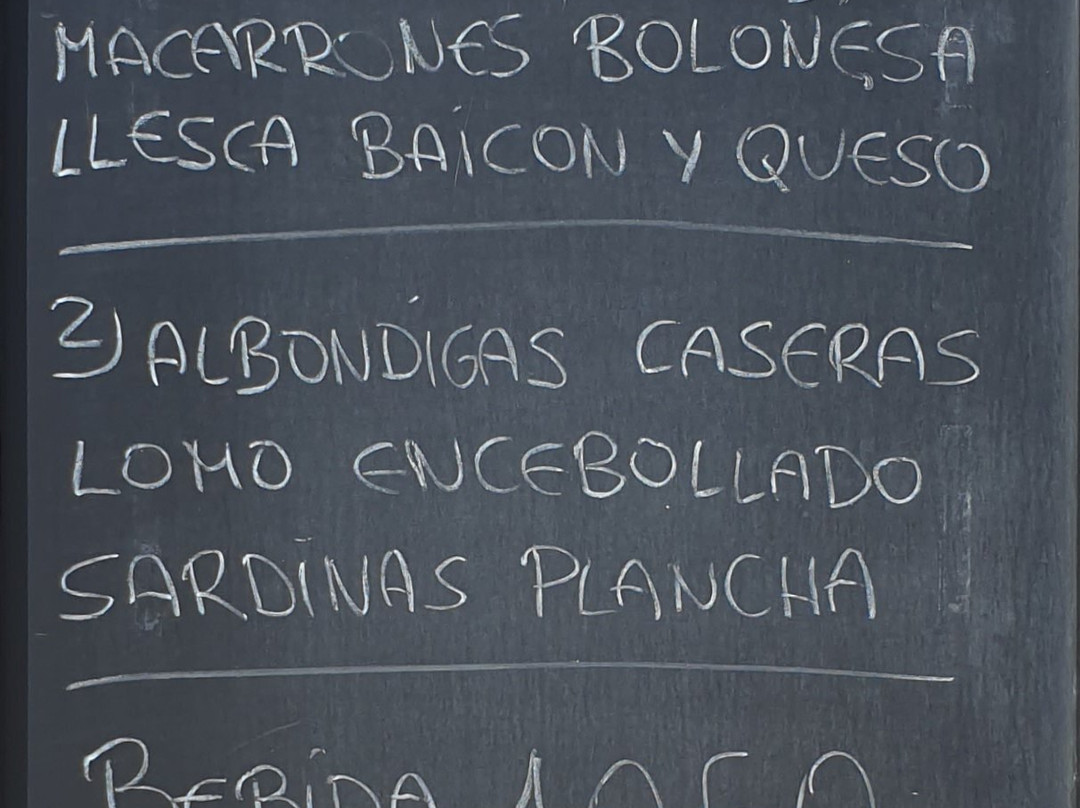 MACARRONES BOLONESA
LLESCA BAICON Y QUESO
2) ALBONDIGAS CASERAS
LOMO ENCEBOLLADO
SARDINAS PLANCHA
BEBIDA